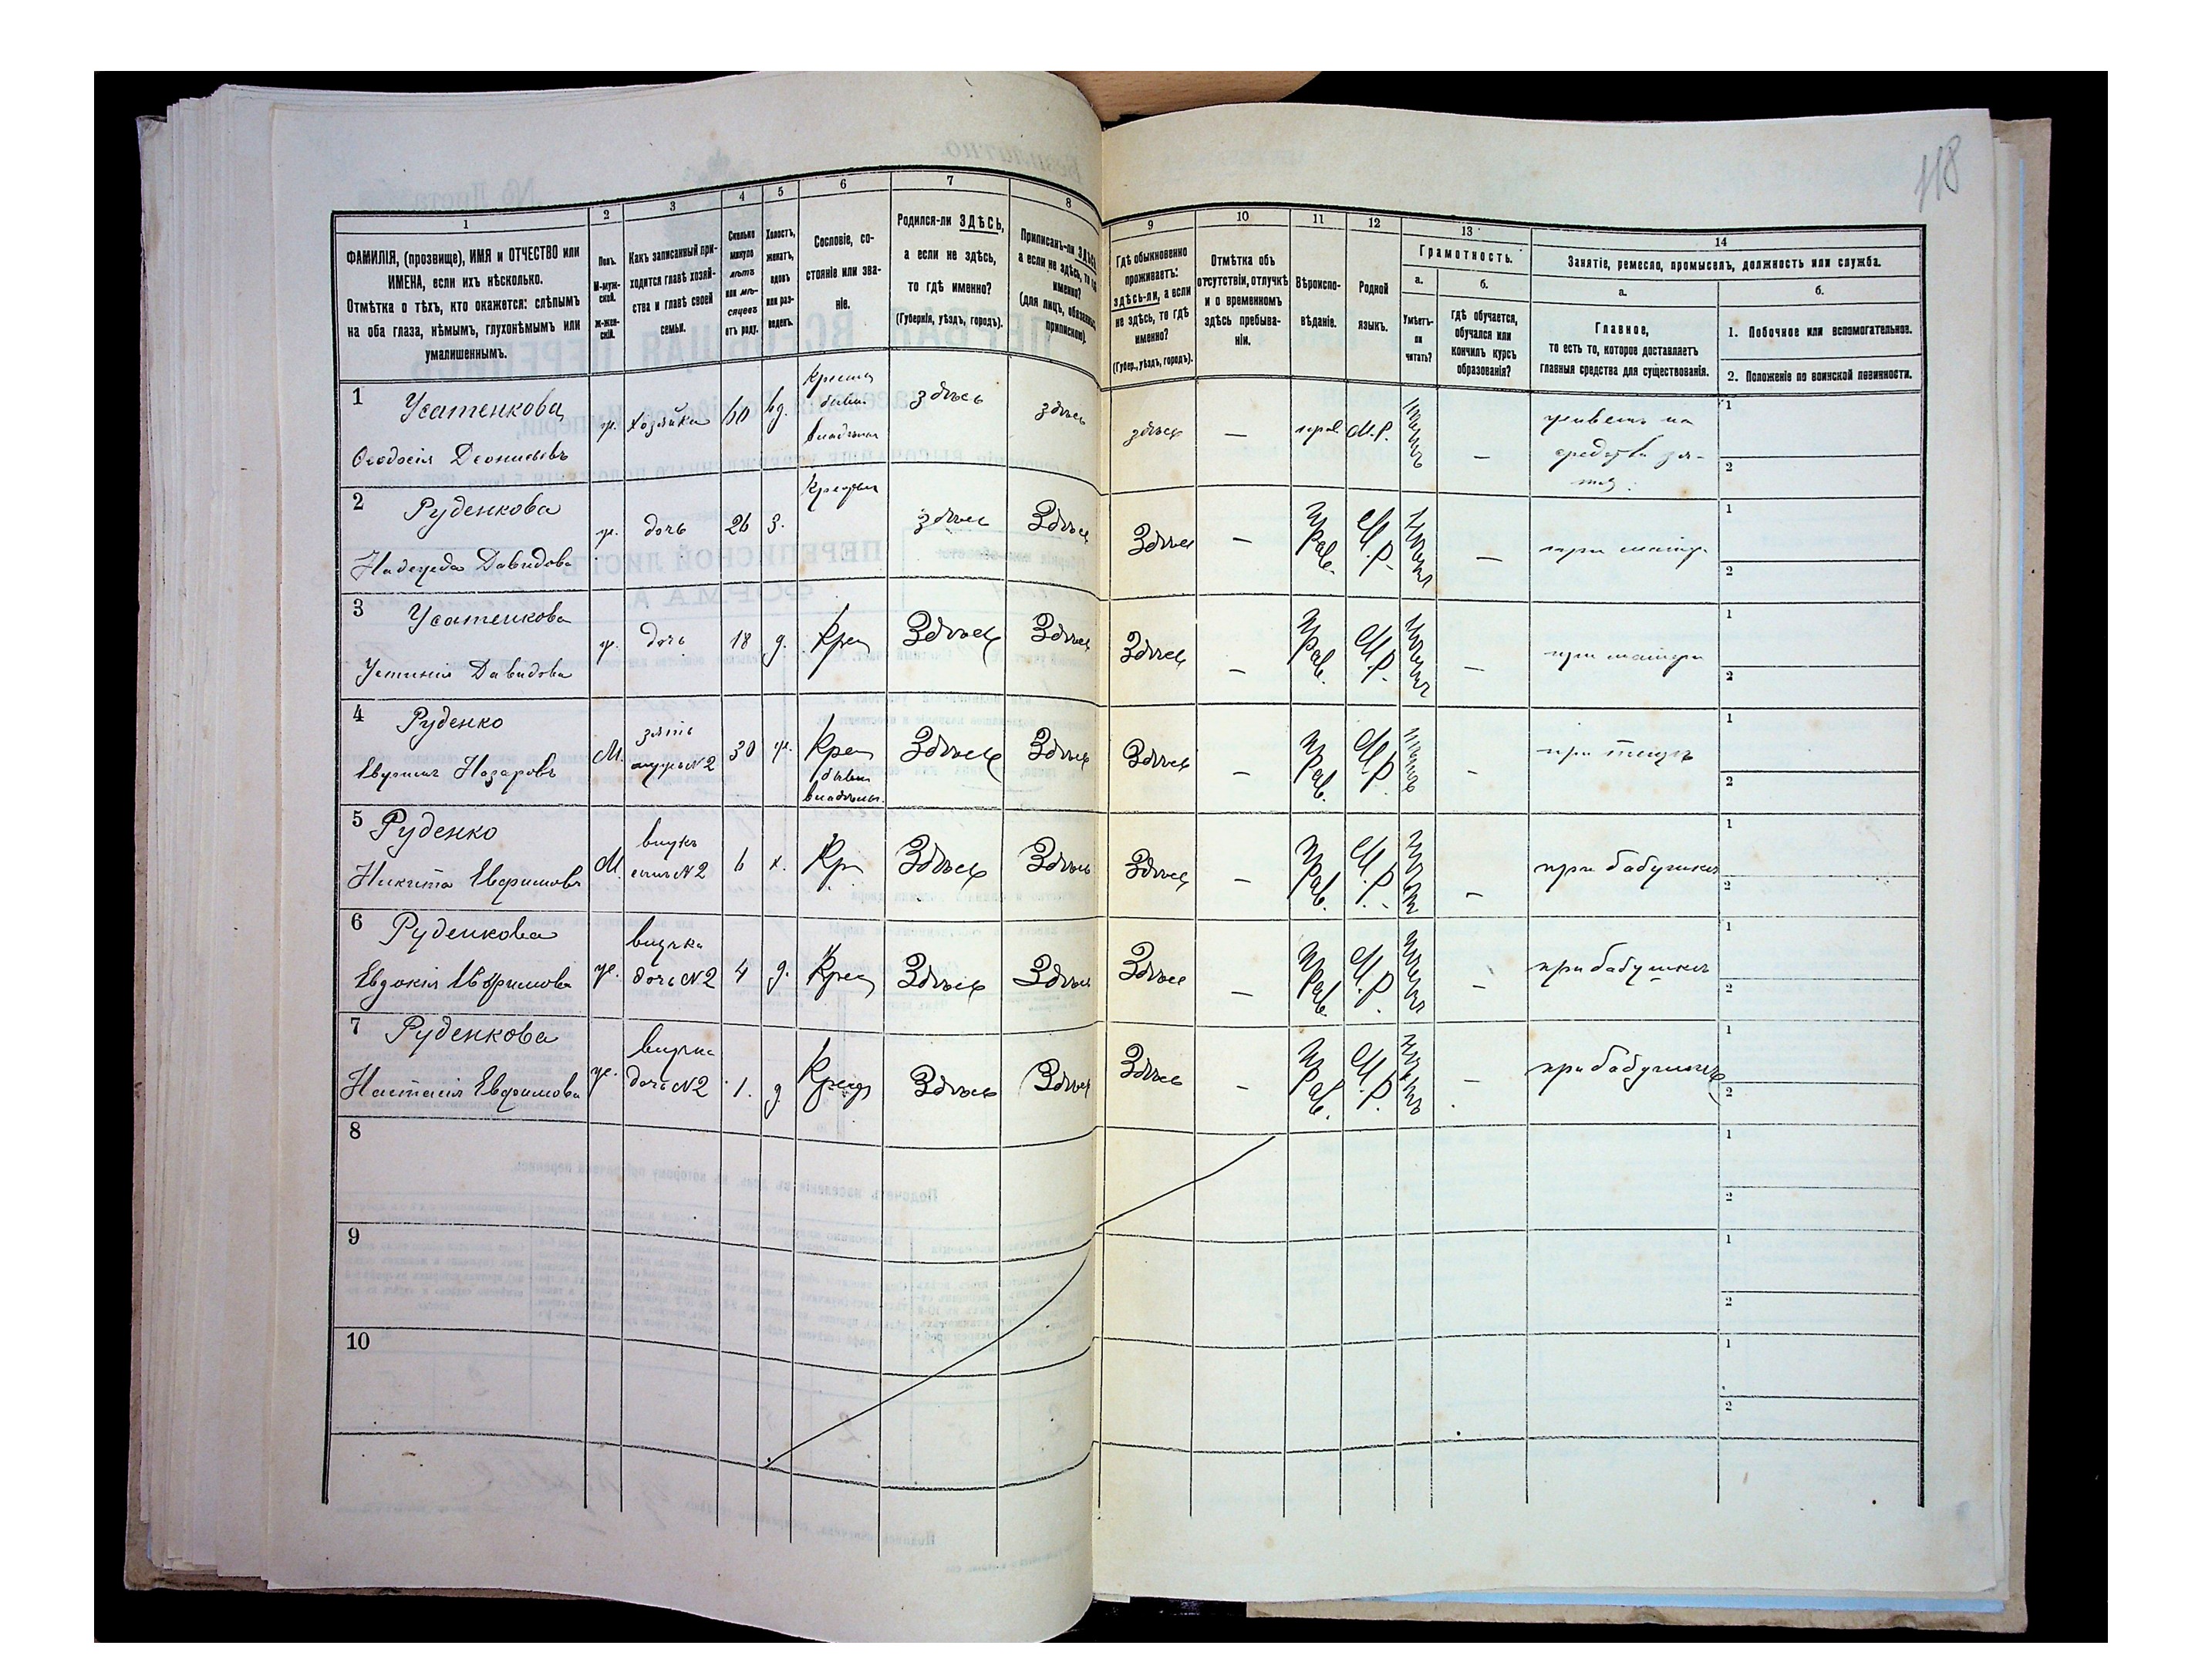 118
1
2
3
4
5
6
7
8
9
10
11
12
13
14
ФАМИЛІЯ, (прозвище), ИМЯ и ОТЧЕСТВО или
ИМЕНА, если ихъ нѣсколько.
Отмѣтка о тѣхъ, кто окажется: слѣпымъ
на оба глаза, нѣмымъ, глухонѣмымъ или
умалишеннымъ.
Полъ.
М-муж-
ской.
Ж-жен-
скій.
Какъ записанный при-
ходится главѣ хозяй-
ства и главѣ своей
семьи.
Сколько
минуло
лѣтъ
или мѣ-
сяцевъ
отъ роду.
Холостъ,
женатъ,
вдовъ
или раз-
веденъ.
Сословіе, со-
стояніе или зва-
ніе.
Родился-ли ЗДѢСЬ,
а если не здѣсь,
то гдѣ именно?
(Губернія, уѣздъ, городъ).
Приписанъ-ли ЗДѢСЬ,
а если не здѣсь, то гдѣ
именно?
(для лицъ, обязанныхъ
припискою).
Гдѣ обыкновенно
проживаетъ:
здѣсь-ли, а если
не здѣсь, то гдѣ
именно?
(Губер., уѣздъ, городъ).
Отмѣтка объ
отсутствіи, отлучкѣ
и о временномъ
здѣсь пребыва-
ніи.
Вѣроиспо-
вѣданіе.
Родной
языкъ.
Грамотность.
а.
Умѣетъ-
ли
читать?
б.
Гдѣ обучается,
обучался или
кончилъ курсъ
образованія?
Занятіе, ремесло, промыселъ, должность или служба.
а.
Главное,
то есть то, которое доставляетъ
главныя средства для существованія.
б.
1. Побочное или вспомогательное.
2. Положеніе по воинской повинности.
1
Усатенкова
Ѳеодосія Деонисіевъ
ж. хозяйка 60 вд.
здѣсь здѣсь здѣсь — прав. М.Р. —
живетъ на
средства зя-
тя.
1
2
2
Руденкова
Надежда Давидова
ж. дочь 26 з.
здѣсь Здѣсь Здѣсь — Прав. М.Р. —
при матер.
1
2
3
Усатенкова
Устинія Давидова
ж. дочь 18 д. Крес
Здѣсь Здѣсь Здѣсь — Прав. М.Р. —
при матери
1
2
4
Руденко
Назаровъ
М.
зять
мужъ N2
30 ж.
Крес
Здѣсь Здѣсь Здѣсь — Прав. М.Р. —
при тещѣ
1
2
5
Руденко
Никита Евфимовъ
М.
внукъ
сынъ N2
6 х. Кр
Здѣсь Здѣсь Здѣсь — Прав. М.Р. —
при бабушкѣ
1
2
6
Руденкова
Евдокія Евфимова
ж.
внучка
дочь N2
4 д. Крес
Здѣсь Здѣсь Здѣсь — Прав. М.Р. —
при бабушкѣ
1
2
7
Руденкова
Настасія Евфимова
ж.
внучка
дочь N2
1. д
Здѣсь Здѣсь Здѣсь — Прав. М.Р. —
при бабушкѣ
1
2
8
1
2
9
1
2
10
1
2